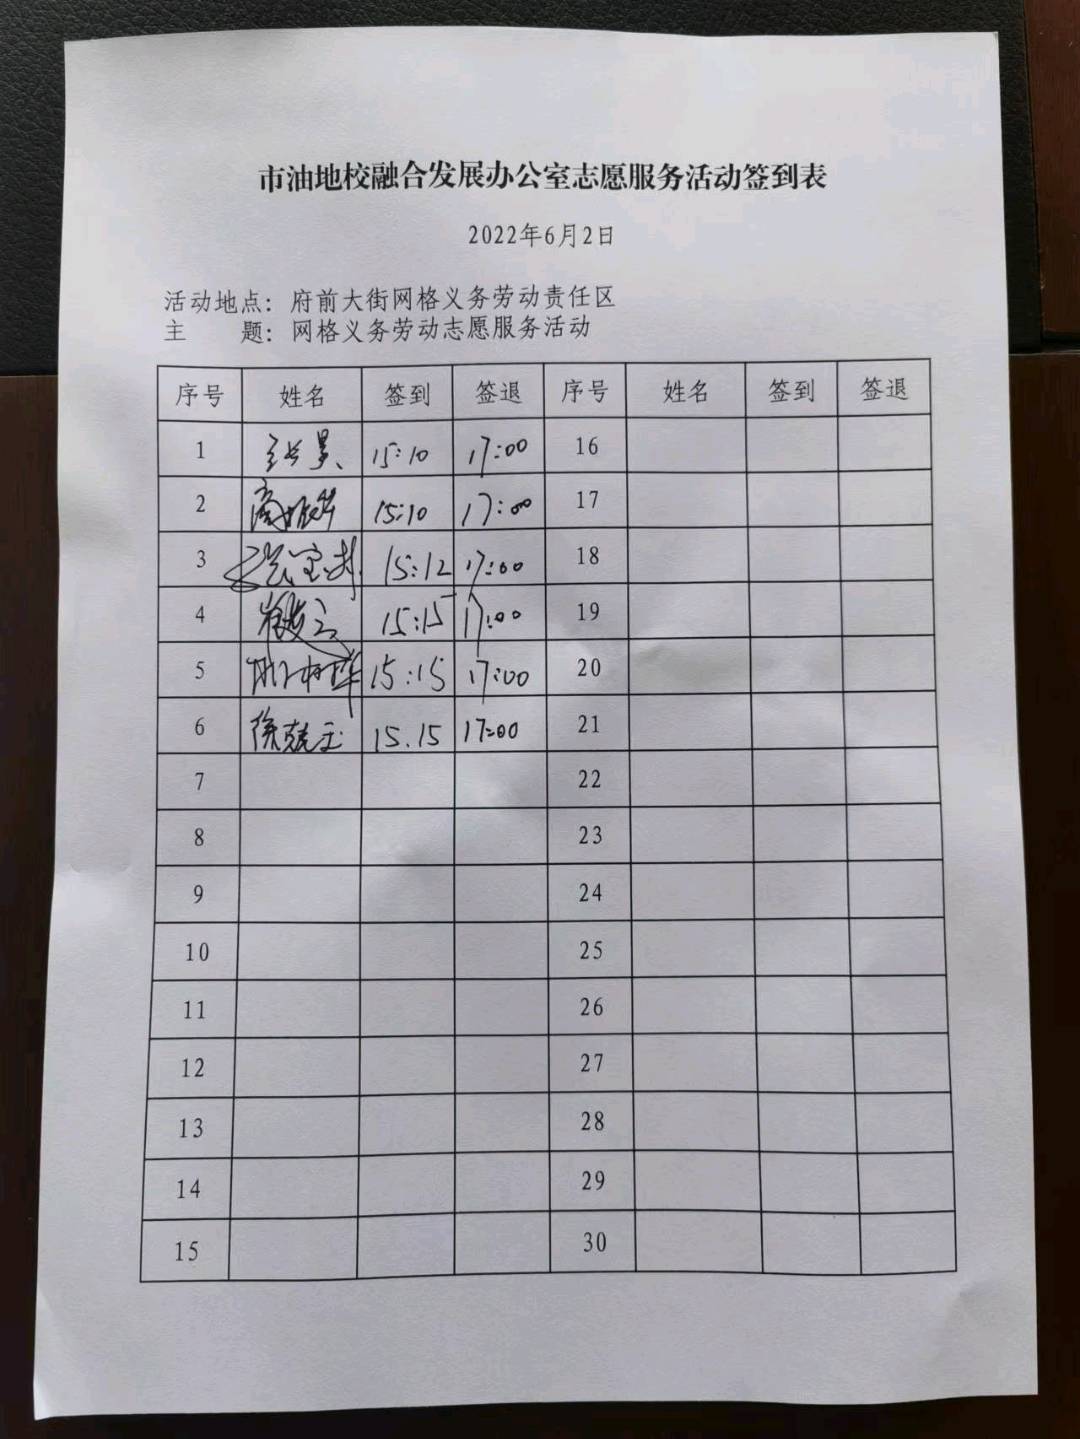 市油地校融合发展办公室志愿服务活动签到表
2022年6月2日
活动地点：府前大街网格义务劳动责任区
主 题：网格义务劳动志愿服务活动
序号 姓名 签到 签退 序号 姓名 签到 签退
1 15:10 17:00 16
2 15:10 17:00 17
3 15:12 17:00 18
4 15:15 17:00 19
5 15:15 17:00 20
6 15.15 17:00 21
7 22
8 23
9 24
10 25
11 26
12 27
13 28
14 29
15 30